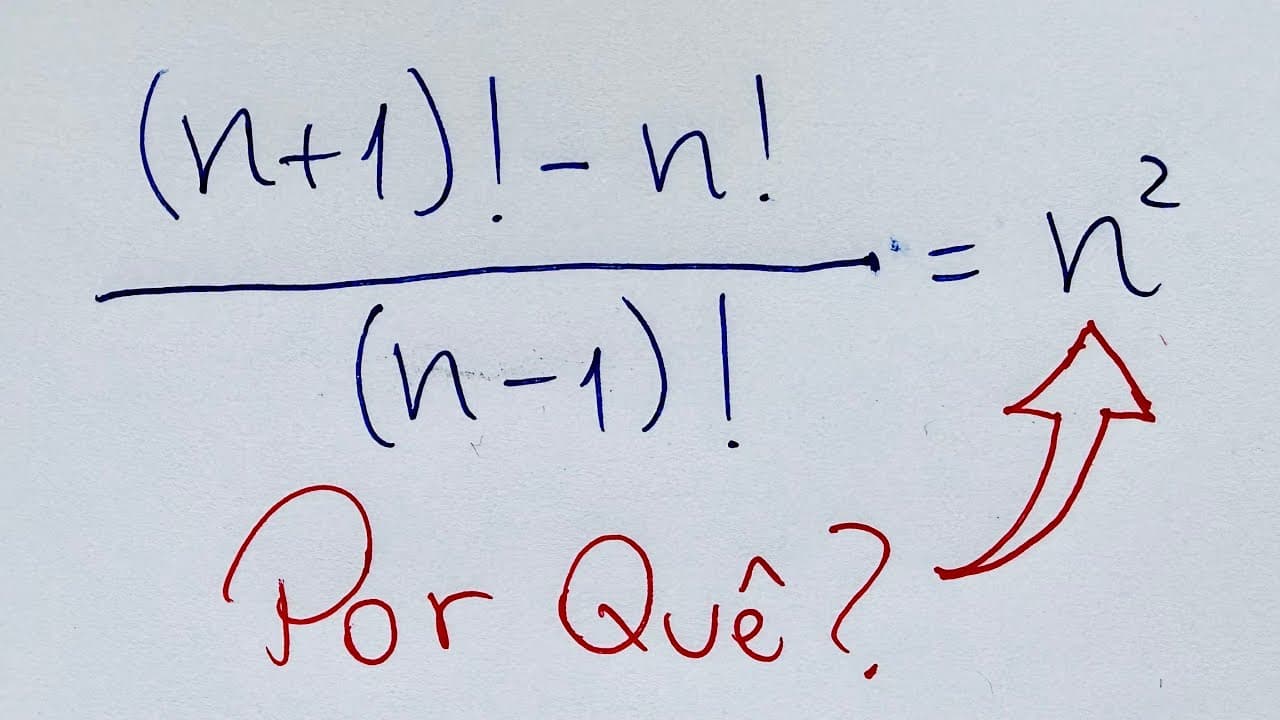 (n+1)! - n!
(n-1)!
= n²
Por Quê?